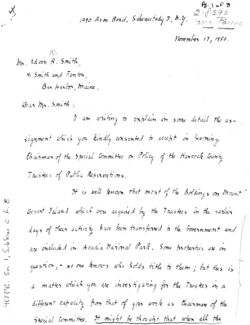 Pg. 1 of 3
1090 Avon Road, Schenectady 8, N.Y.
November 17, 1950.
Mr. Edwin R. Smith,
% Smith and Fenton,
Bar Harbor, Maine.
Dear Mr. Smith:
I am writing to explain in some detail the as-
signment which you kindly consented to accept in becoming
Chairman of the Special Committee on Policy of the Hancock County
Trustees of Public Reservations.
It is well known that most of the holdings on Mount
Desert Island which were acquired by the Trustees in the earlier
days of their activity have been transferred to the Government and
are included in Acadia National Park. Some properties are in
question, - no one knows who holds title to them; but this is
a matter which you are investigating for the Trustees in a
different capacity from that of your work as Chairman of the
Special Committee. It might be thought that when all the